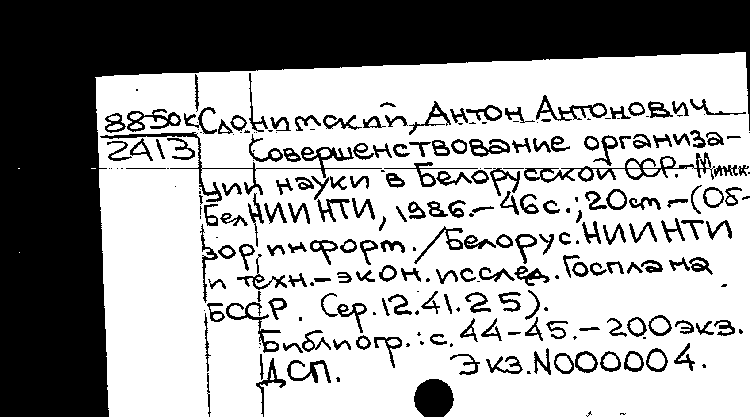 88-50к Слонимский, Антон Антонович.
2413 Совершенствование организа-
ции науки в Белорусской ССР.-Минск:
БелНИИНТИ, 1986.-46с.; 20см-(Об-
зор. информ. / Белорус. НИИНТИ
и техн.-экон. исслед. Госплана
БССР. Сер. 12.41.25).
Библиогр.: с. 44-45.-200экз.
ДСП. Экз.N000004.